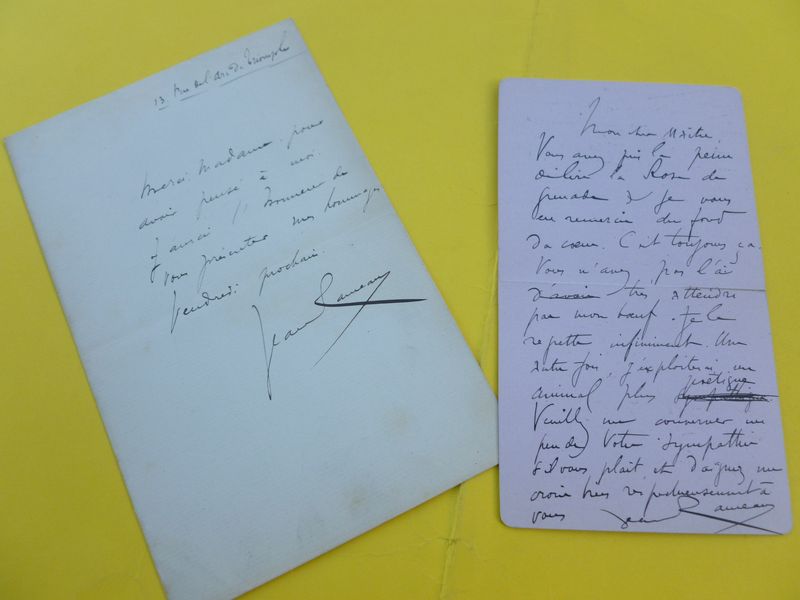 13 rue de l'arc de Triomphe
Merci Madame, pour
avoir pensé à moi.
J'aurai l'honneur de
vous présenter mes hommages
Vendredi prochain.
Jean Rameau
Mon cher Maître,
Vous avez pris la peine
de lire la Rose de
grenade & je vous
en remercie du fond
du cœur. C'est toujours ça.
Vous n'avez pas l'air
d'avoir très attendri
par mon bœuf. Je le
regrette infiniment. Une
autre fois, j'exploiterai un
animal plus poétique
Veuillez me conserver un
peu de votre sympathie
s'il vous plait, et daignez me
croire très respectueusement à
vous Jean Rameau